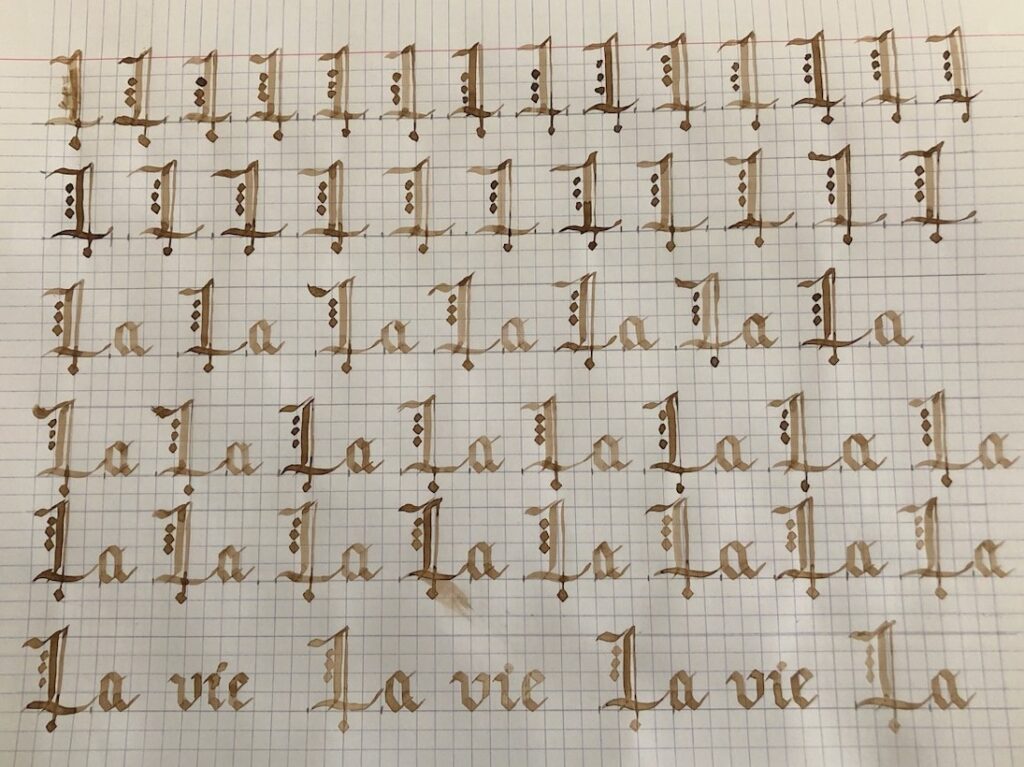 L L L L L L L L L L L L L L
L L L L L L L L L L L
La La La La La La La
La La La La La La La La
La La La La La La La La
La vie La vie La vie La